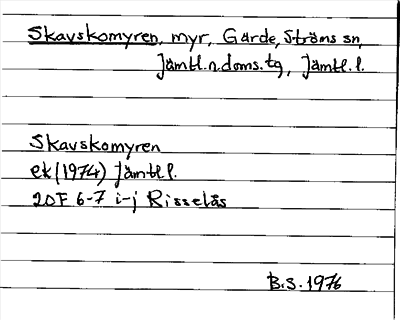 Skavskomyren, myr, Gärde, Ströms sn,
Jämtl.n.doms.tg, Jämtl.l.
Skavskomyren
ek (1974) Jämtl.l.
20F 6-7 i-j Risselås
B.S. 1976